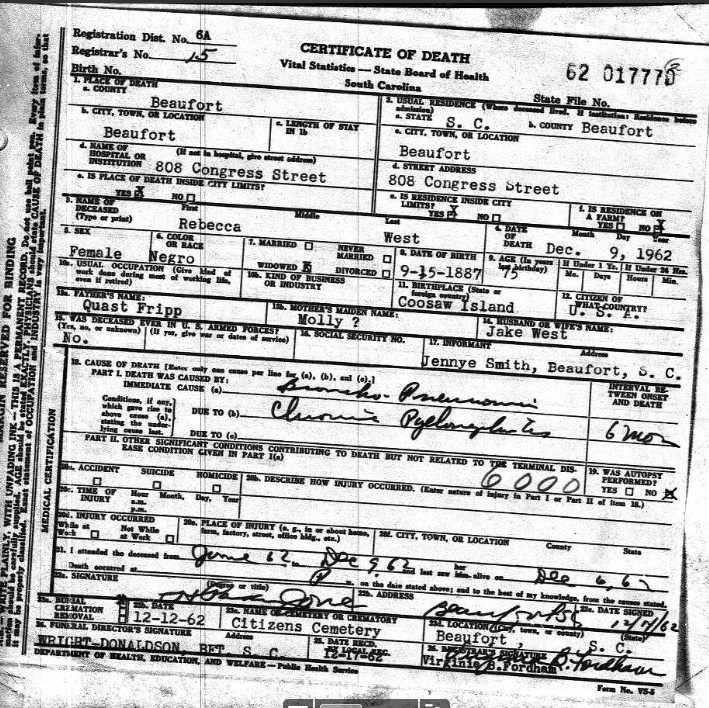 Registration Dist. No. 6A
Registrar's No. 15
CERTIFICATE OF DEATH
Vital Statistics — State Board of Health
South Carolina
62 017770
Birth No.
State File No.
1. PLACE OF DEATH
a. COUNTY
Beaufort
2. USUAL RESIDENCE (Where deceased lived. If institution: Residence before admission)
a. STATE S. C. b. COUNTY Beaufort
b. CITY, TOWN, OR LOCATION
Beaufort
c. LENGTH OF STAY IN 1b
c. CITY, TOWN, OR LOCATION
Beaufort
d. NAME OF HOSPITAL OR INSTITUTION (If not in hospital, give street address)
808 Congress Street
d. STREET ADDRESS
808 Congress Street
e. IS PLACE OF DEATH INSIDE CITY LIMITS?
YES X NO
e. IS RESIDENCE INSIDE CITY LIMITS?
YES X NO
f. IS RESIDENCE ON A FARM?
YES NO X
3. NAME OF DECEASED (Type or print)
First Middle Last
Rebecca West
4. DATE OF DEATH Month Day Year
Dec. 9, 1962
5. SEX
Female
6. COLOR OR RACE
Negro
7. MARRIED NEVER MARRIED
WIDOWED X DIVORCED
8. DATE OF BIRTH
9-15-1887
9. AGE (In years last birthday)
75
If Under 1 Yr. If Under 24 Hrs.
Mo. Days Hours Min.
10a. USUAL OCCUPATION (Give kind of work done during most of working life, even if retired)
10b. KIND OF BUSINESS OR INDUSTRY
11. BIRTHPLACE (State or foreign country)
Coosaw Island
12. CITIZEN OF WHAT COUNTRY?
U. S. A.
13a. FATHER'S NAME:
Quast Fripp
13b. MOTHER'S MAIDEN NAME:
Molly ?
14. HUSBAND OR WIFE'S NAME:
Jake West
15. WAS DECEASED EVER IN U. S. ARMED FORCES?
(Yes, no, or unknown) (If yes, give war or dates of service)
No.
16. SOCIAL SECURITY NO.
17. INFORMANT Address
Jennye Smith, Beaufort, S. C.
18. CAUSE OF DEATH [Enter only one cause per line for (a), (b), and (c).]
PART I. DEATH WAS CAUSED BY:
IMMEDIATE CAUSE (a) Broncho-Pneumonia
INTERVAL BETWEEN ONSET AND DEATH
Conditions, if any, which gave rise to above cause (a), stating the underlying cause last.
DUE TO (b) Chronic Pyelonephritis
6 mos
DUE TO (c)
PART II. OTHER SIGNIFICANT CONDITIONS CONTRIBUTING TO DEATH BUT NOT RELATED TO THE TERMINAL DISEASE CONDITION GIVEN IN PART I(a)
6000
19. WAS AUTOPSY PERFORMED?
YES NO X
MEDICAL CERTIFICATION
20a. ACCIDENT SUICIDE HOMICIDE
20b. DESCRIBE HOW INJURY OCCURRED. (Enter nature of injury in Part I or Part II of item 18.)
20c. TIME OF INJURY Hour Month, Day, Year
a.m.
p.m.
20d. INJURY OCCURRED
While at Work Not While at Work
20e. PLACE OF INJURY (e. g., in or about home, farm, factory, street, office bldg., etc.)
20f. CITY, TOWN, OR LOCATION County State
21. I attended the deceased from June 62 to Dec 9, 62 and last saw her him alive on Dec 6, 62
Death occurred at P m. on the date stated above; and to the best of my knowledge, from the causes stated.
22a. SIGNATURE (Degree or title)
22b. ADDRESS
Beaufort SC
22c. DATE SIGNED
23a. BURIAL X
CREMATION
REMOVAL
23b. DATE
12-12-62
23c. NAME OF CEMETERY OR CREMATORY
Citizens Cemetery
23d. LOCATION (City, town, or county) (State)
Beaufort S. C.
24. FUNERAL DIRECTOR'S SIGNATURE Address
WRIGHT-DONALDSON, BFT. S. C.
25. DATE REC'D BY LOCAL REG.
12-17-62
26. REGISTRAR'S SIGNATURE
Virginia B. Fordham
DEPARTMENT OF HEALTH, EDUCATION, AND WELFARE — Public Health Service
Form No. VS-5